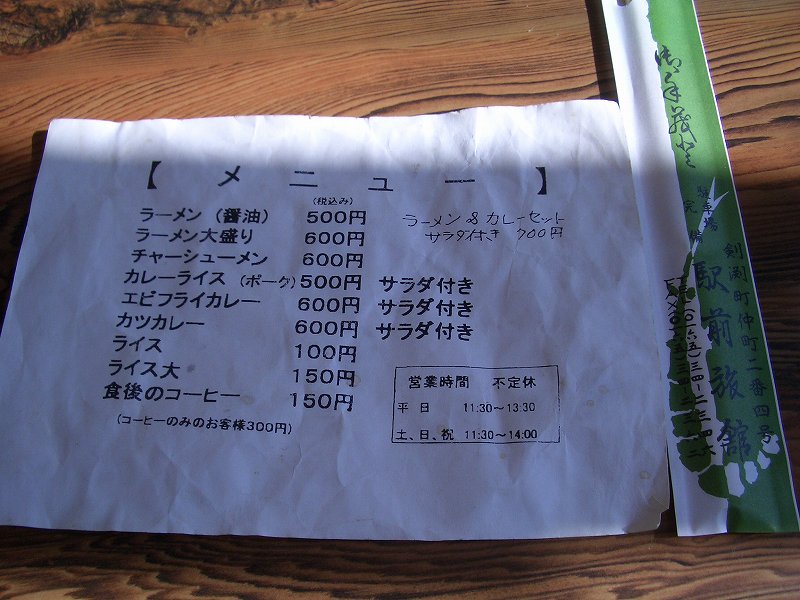 【 メ ニ ュ ー 】
(税込み)
ラーメン (醤油) 500円
ラーメン大盛り 600円
チャーシューメン 600円
カレーライス (ポーク) 500円 サラダ付き
エビフライカレー 600円 サラダ付き
カツカレー 600円 サラダ付き
ライス 100円
ライス大 150円
食後のコーヒー 150円
(コーヒーのみのお客様300円)
ラーメン&カレーセット
サラダ付き 700円
営業時間 不定休
平 日 11:30~13:30
土、日、祝 11:30~14:00
御手茂登
駐車場
完備
剣淵町仲町二番四号
駅前旅館